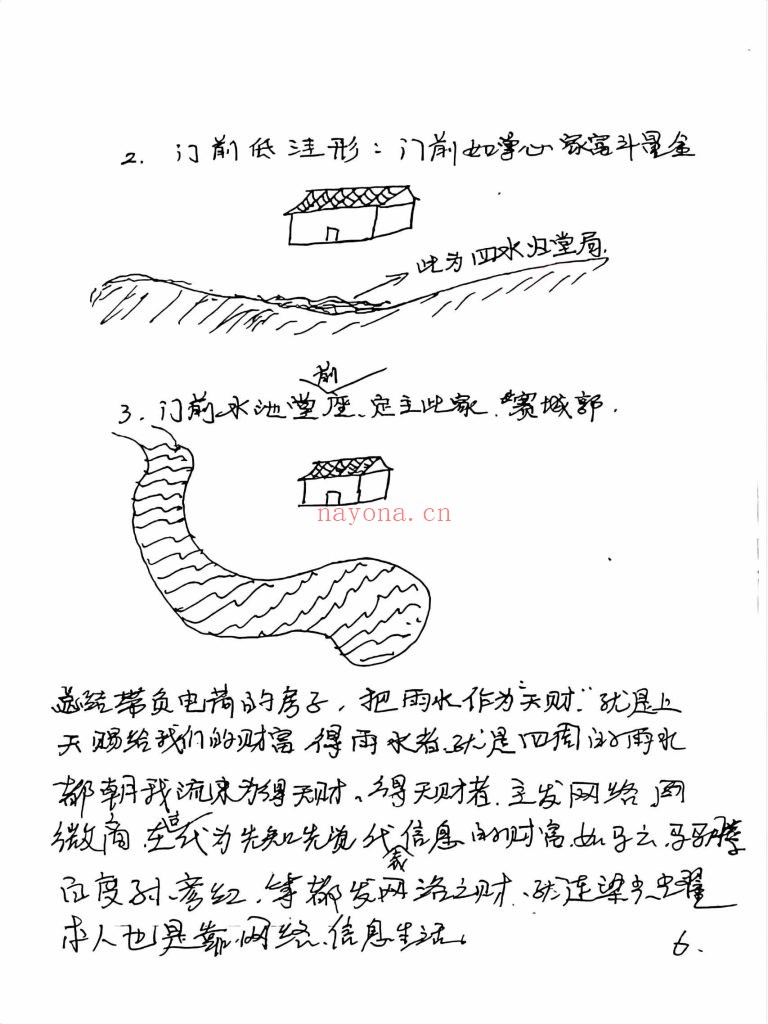 2. 门前低洼形：门前如掌心 家富斗量金
此为四水归堂局.
前
3. 门前水池堂座、定主此家、赛城郭.
nayona.cn
总结带负电荷的房子，把雨水作为"天财"就是上
天赐给我们的财富 得雨水者、就是四周的雨水
都朝我流来为得天财。得天财者、主发网络、网
微商、为先知先觉 代
表
信息的财富、如马云、马
百度 等都发网络之财、就连梁
本人也是靠网络、信息生活。
6.